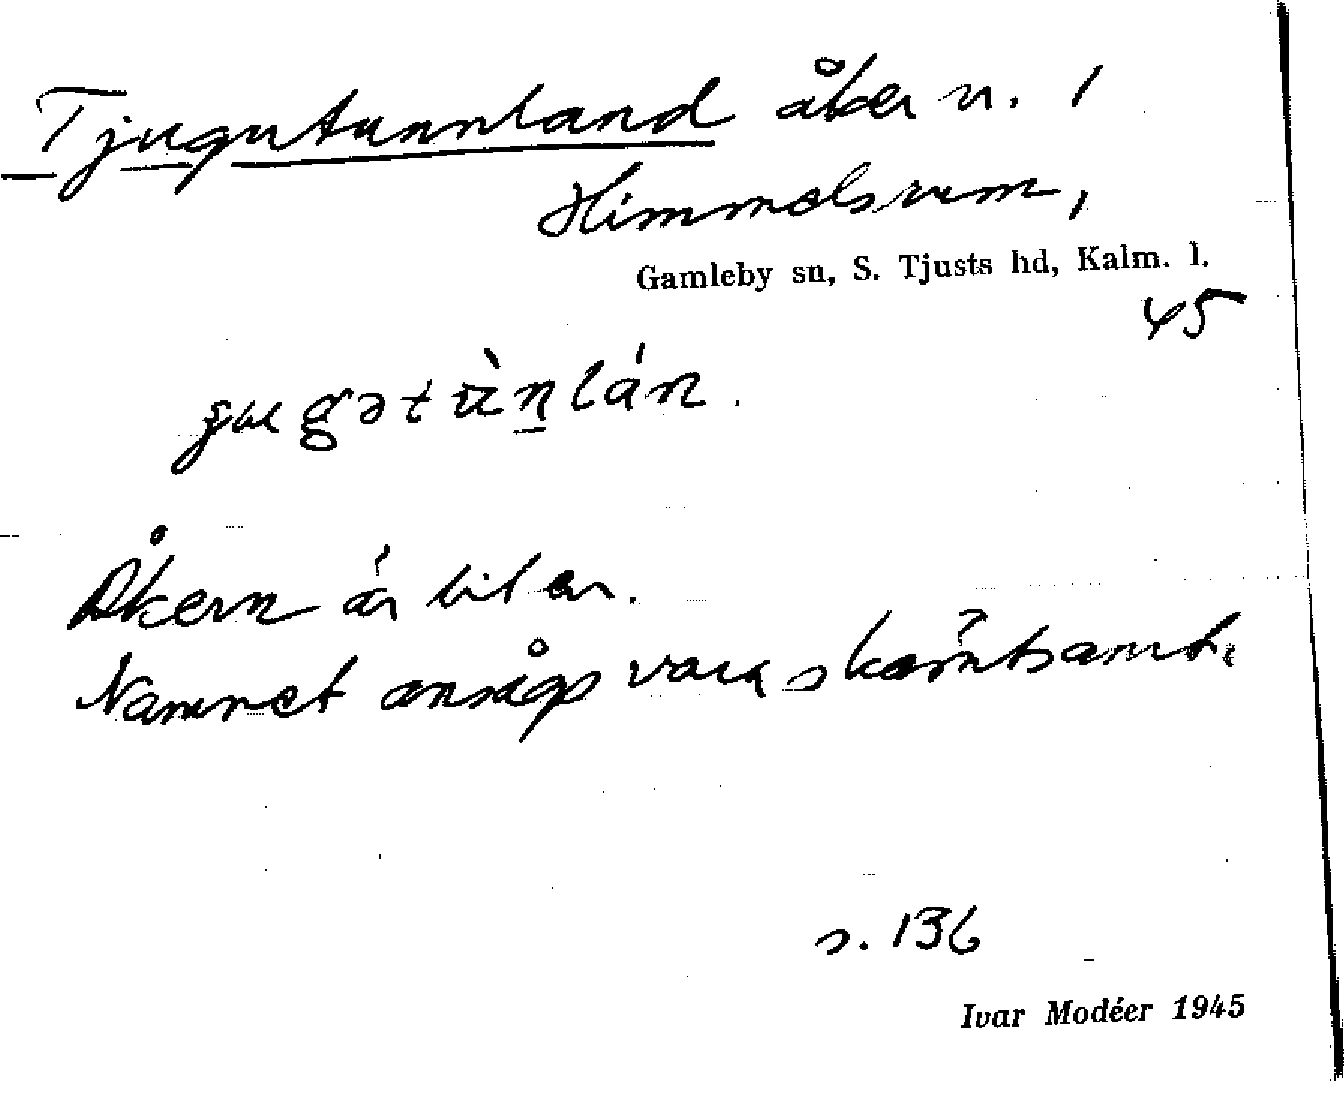 Tjugutunnland åker n. 1
Himmelsrum,
Gamleby sn, S. Tjusts hd, Kalm. l.
45
Åkern är liten.
Namnet ansågs vara skämtsamt.
s. 136
Ivar Modéer 1945